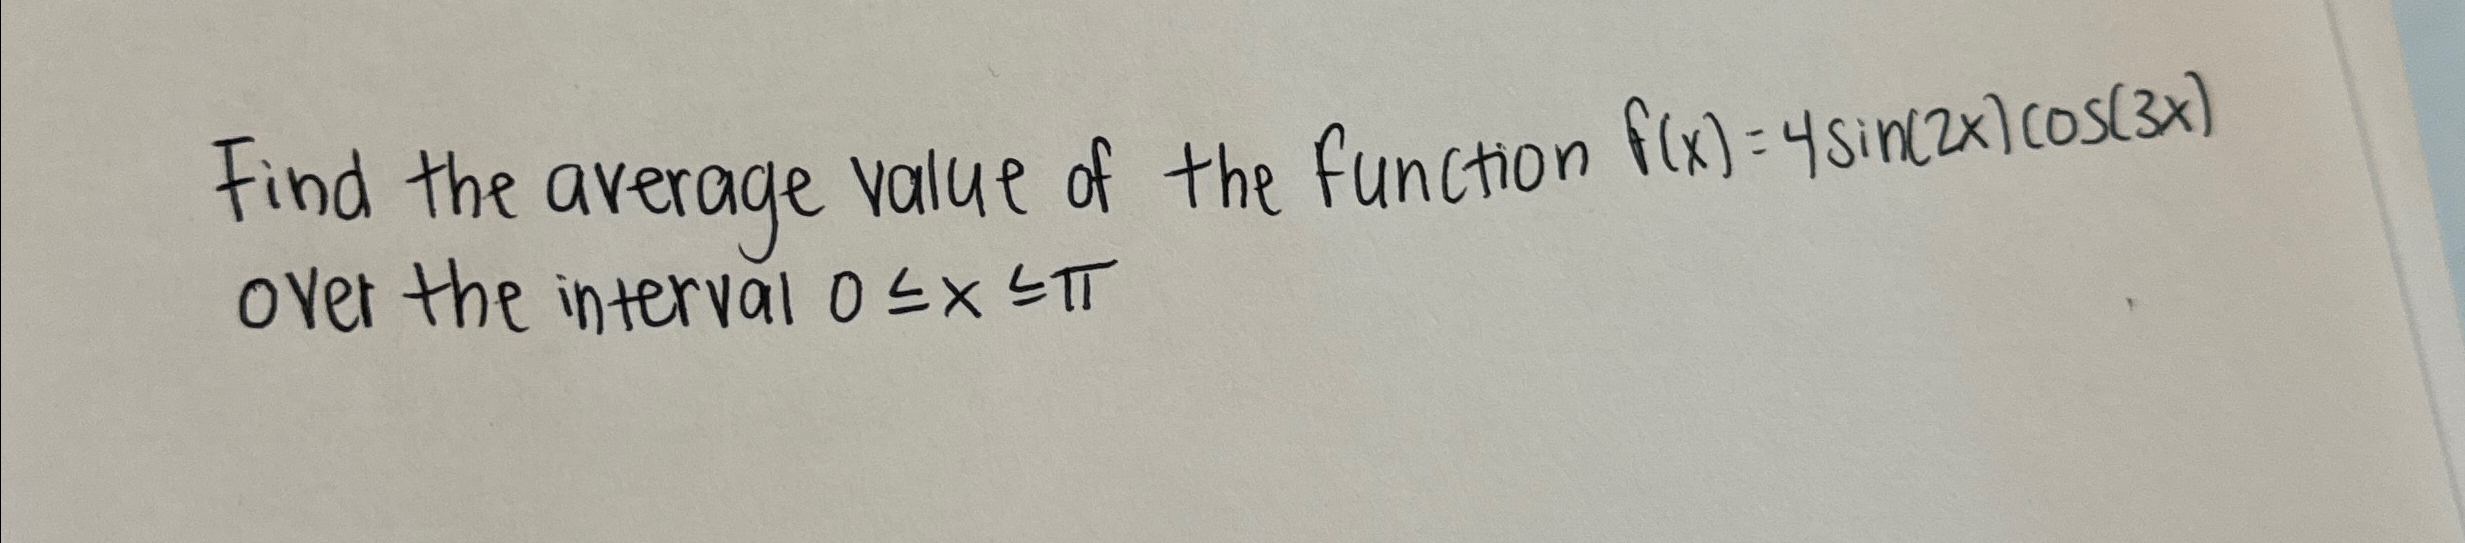 Find the average value of the function f(x)=4sin(2x)cos(3x)
over the interval 0≤x≤π